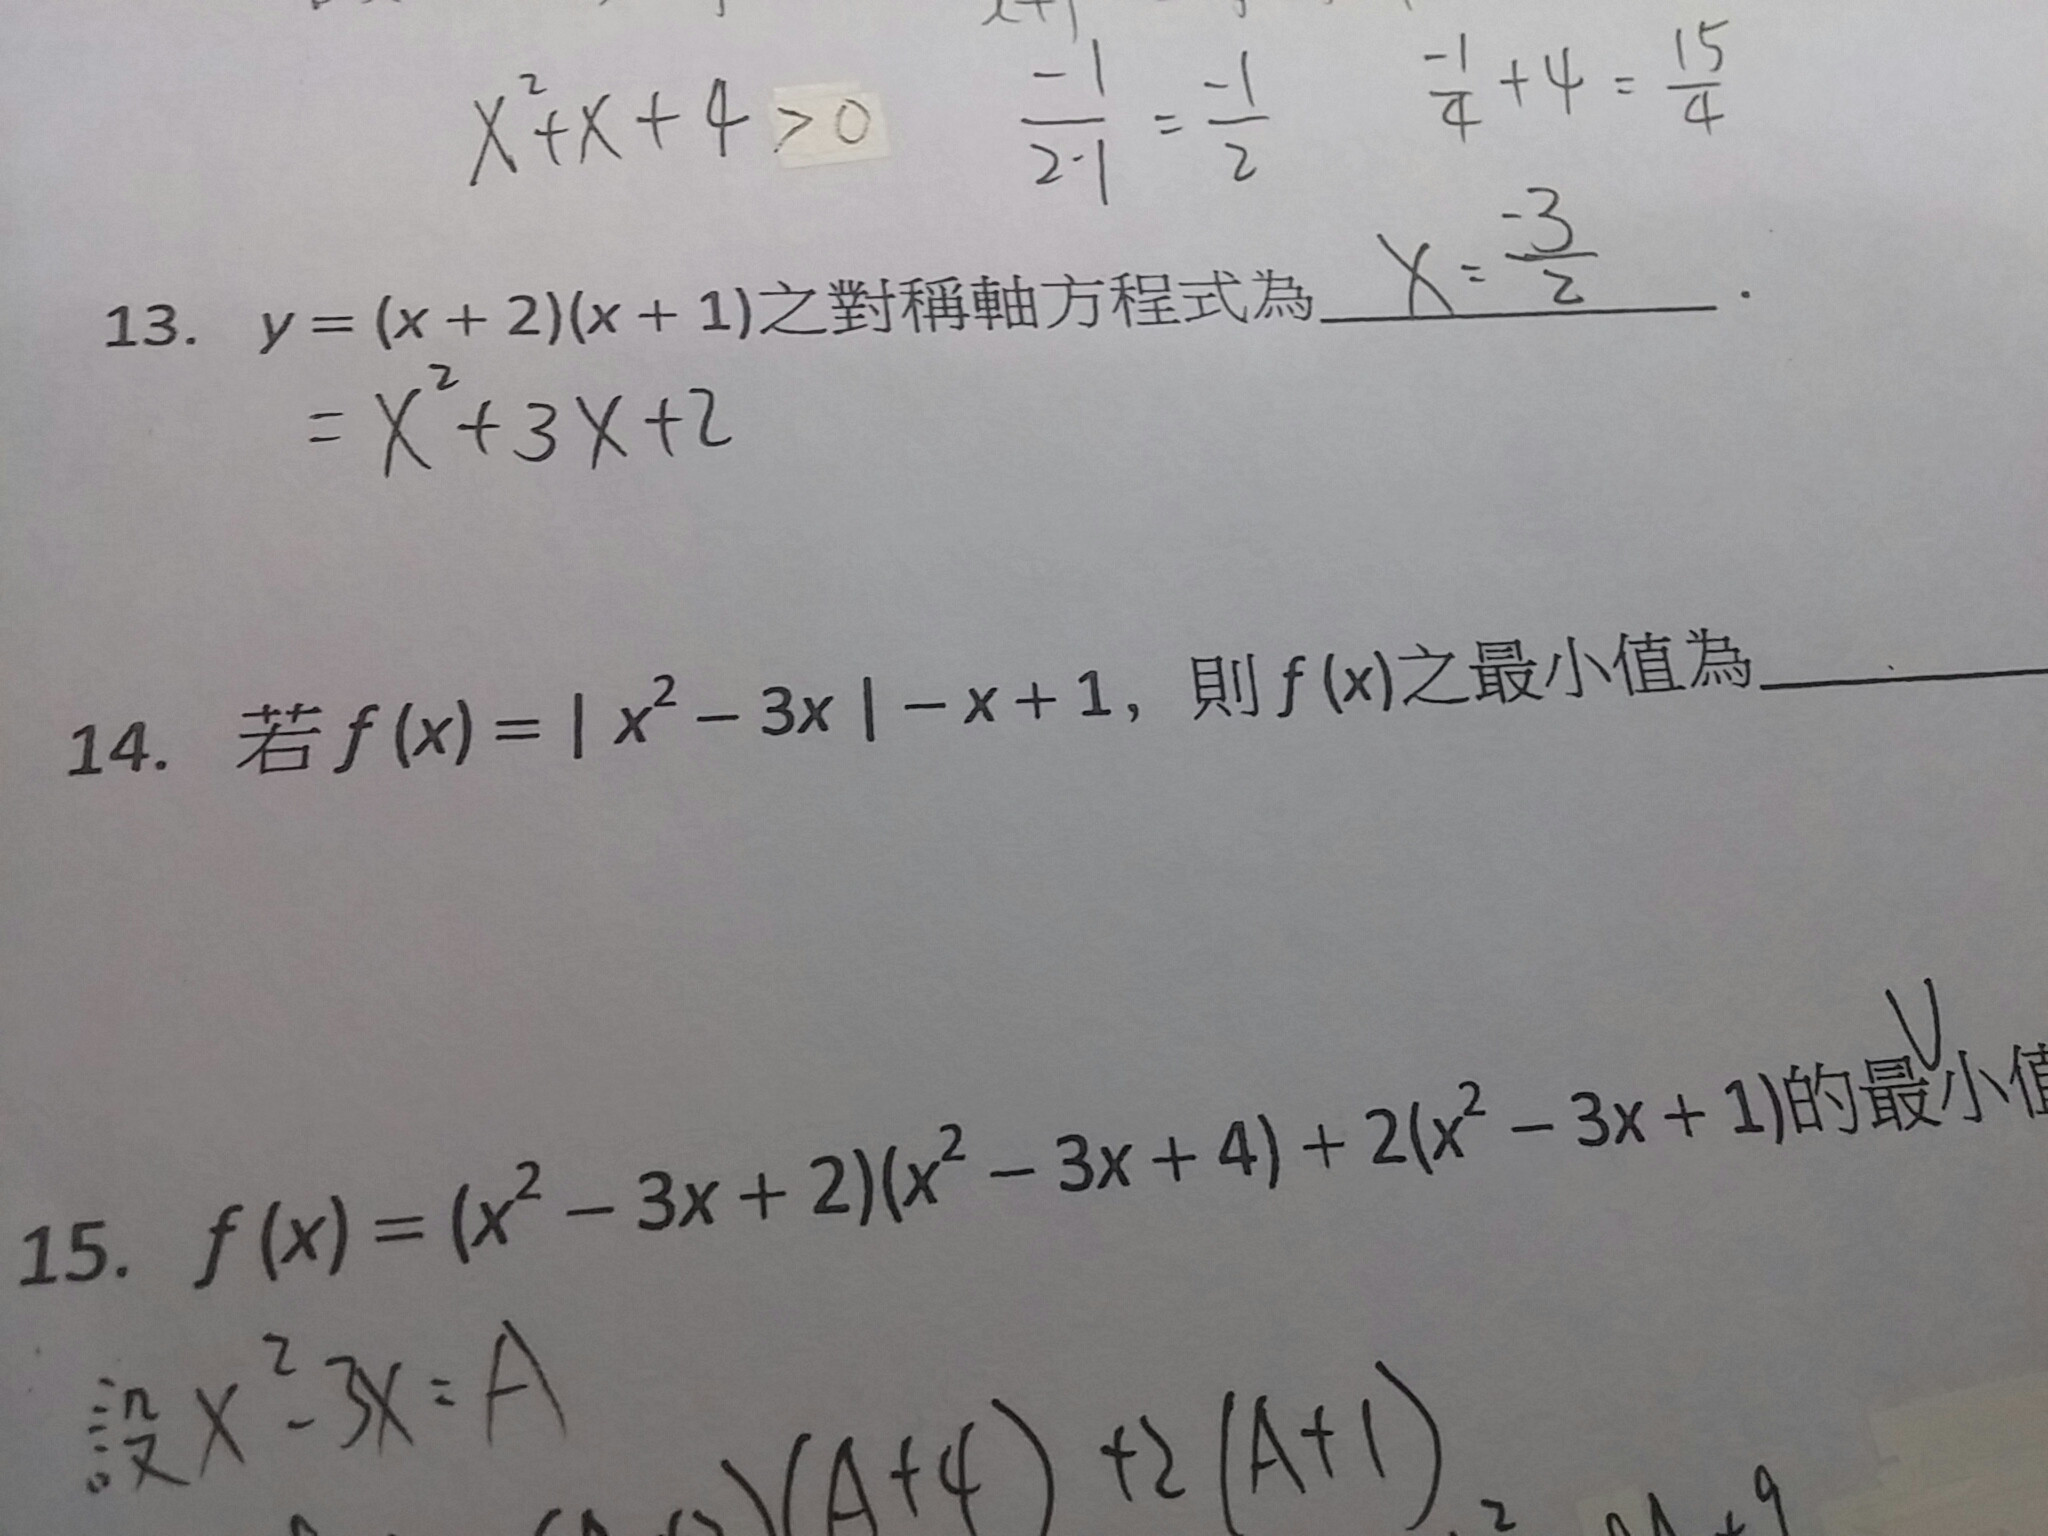 x²+x+4>0 -1/2·1 = -1/2 -1/4+4=15/4
13. y = (x + 2)(x + 1)之對稱軸方程式為 x=-3/2 .
= x²+3x+2
14. 若 f (x) = | x² – 3x | – x + 1, 則 f (x)之最小值為
15. f (x) = (x² – 3x + 2)(x² – 3x + 4) + 2(x² – 3x + 1)的最小值
設 x²-3x=A
)(A+4)+2(A+1)